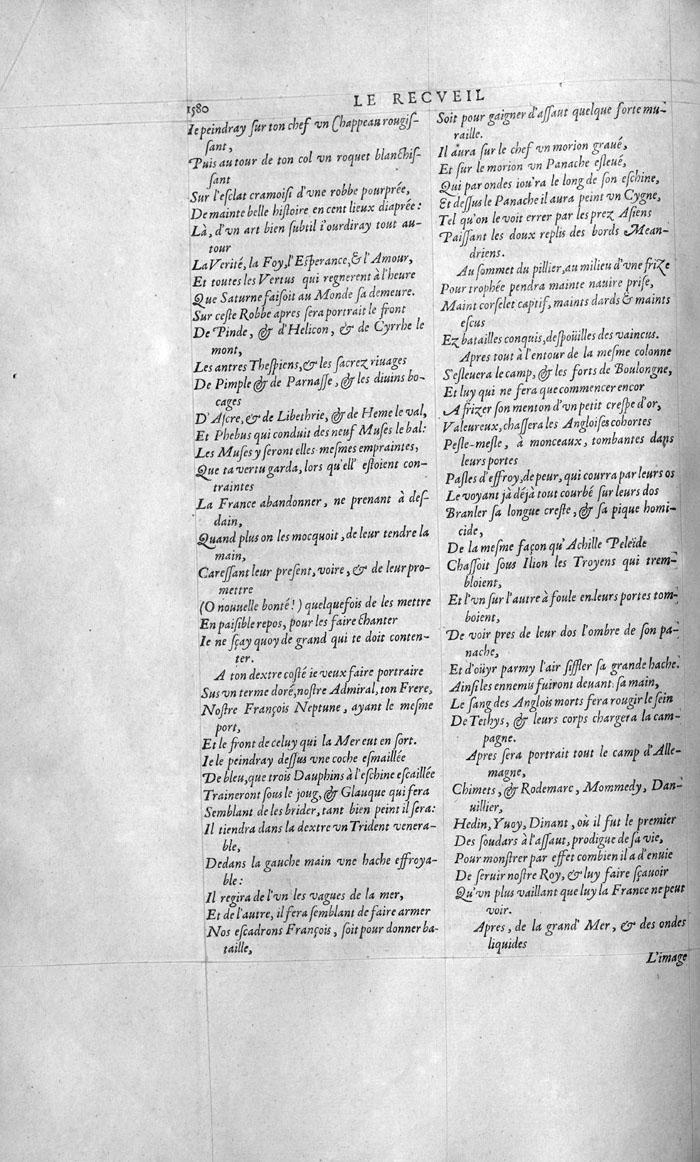 1580
LE RECVEIL
Ie peindray ſur ton chef vn Chappeau rougiſ-
ſant,
Puis au tour de ton col vn roquet blanchiſ-
ſant
Sur l'eſclat cramoiſi d'vne robbe pourprée,
De mainte belle hiſtoire en cent lieux diaprée:
Là, d'vn art bien ſubtil i'ourdiray tout au-
tour
La Verité, la Foy, l'Eſperance, & l'Amour,
Et toutes les Vertus qui regnerent à l'heure
Que Saturne faiſoit au Monde ſa demeure.
Sur ceſte Robbe apres ſera portrait le front
De Pinde, & d'Helicon, & de Cyrrhe le
mont,
Les antres Theſpiens, & les ſacrez riuages
De Pimple & de Parnaſſe, & les diuins bo-
cages
D'Aſcre, & de Libethrie, & de Heme le val,
Et Phebus qui conduit des neuf Muſes le bal:
Les Muſes y ſeront elles-meſmes empraintes,
Que ta vertu garda, lors qu'ell' eſtoient con-
traintes
La France abandonner, ne prenant à deſ-
dain,
Quand plus on les mocquoit, de leur tendre la
main,
Careſſant leur preſent, voire, & de leur pro-
mettre
(O nouuelle bonté!) quelquefois de les mettre
En paiſible repos, pour les faire chanter
Ie ne ſçay quoy de grand qui te doit conten-
ter.
A ton dextre coſté ie veux faire portraire
Sus vn terme doré, noſtre Admiral, ton Frere,
Noſtre François Neptune, ayant le meſme
port,
Et le front de celuy qui la Mer eut en ſort.
Ie le peindray deſſus vne coche eſmaillée
De bleu, que trois Dauphins à l'eſchine eſcaillée
Traineront ſous le joug, & Glauque qui fera
Semblant de les brider, tant bien peint il ſera:
Il tiendra dans la dextre vn Trident venera-
ble,
Dedans la gauche main vne hache effroya-
ble:
Il regira de l'vn les vagues de la mer,
Et de l'autre, il fera ſemblant de faire armer
Nos eſcadrons François, ſoit pour donner ba-
taille,
Soit pour gaigner d'aſſaut quelque forte mu-
raille.
Il aura ſur le chef vn morion graué,
Et ſur le morion vn Panache eſleué,
Qui par ondes iou'ra le long de ſon eſchine,
Et deſſus le Panache il aura peint vn Cygne,
Tel qu'on le voit errer par les prez Aſiens
Paiſſant les doux replis des bords Mean-
driens.
Au ſommet du pillier, au milieu d'vne frize
Pour trophée pendra mainte nauire priſe,
Maint corſelet captif, maints dards & maints
eſcus
Ez batailles conquis, deſpoüilles des vaincus.
Apres tout à l'entour de la meſme colonne
S'eſleuera le camp, & les forts de Boulongne,
Et luy qui ne fera que commencer encor
A frizer ſon menton d'vn petit creſpe d'or,
Valeureux, chaſſera les Angloiſes cohortes
Peſle-meſle, à monceaux, tombantes dans
leurs portes
Paſles d'effroy, de peur, qui courra par leurs os
Le voyant jà déjà tout courbé ſur leurs dos
Branler ſa longue creſte, & ſa pique homi-
cide,
De la meſme façon qu'Achille Peleïde
Chaſſoit ſous Ilion les Troyens qui trem-
bloient,
Et l'vn ſur l'autre à foule en leurs portes tom-
boient,
De voir pres de leur dos l'ombre de ſon pa-
nache,
Et d'oüyr parmy l'air ſiffler ſa grande hache.
Ainſi les ennemis fuiront deuant ſa main,
Le ſang des Anglois morts fera rougir le ſein
De Tethys, & leurs corps chargera la cam-
pagne.
Apres ſera portrait tout le camp d'Alle-
magne,
Chimets, & Rodemarc, Mommedy, Dan-
uillier,
Hedin, Yuoy, Dinant, où il fut le premier
Des ſoudars à l'aſſaut, prodigue de ſa vie,
Pour monſtrer par effet combien il a d'enuie
De ſeruir noſtre Roy, & luy faire ſçauoir
Qu'vn plus vaillant que luy la France ne peut
voir.
Apres, de la grand' Mer, & des ondes
liquides
L'image